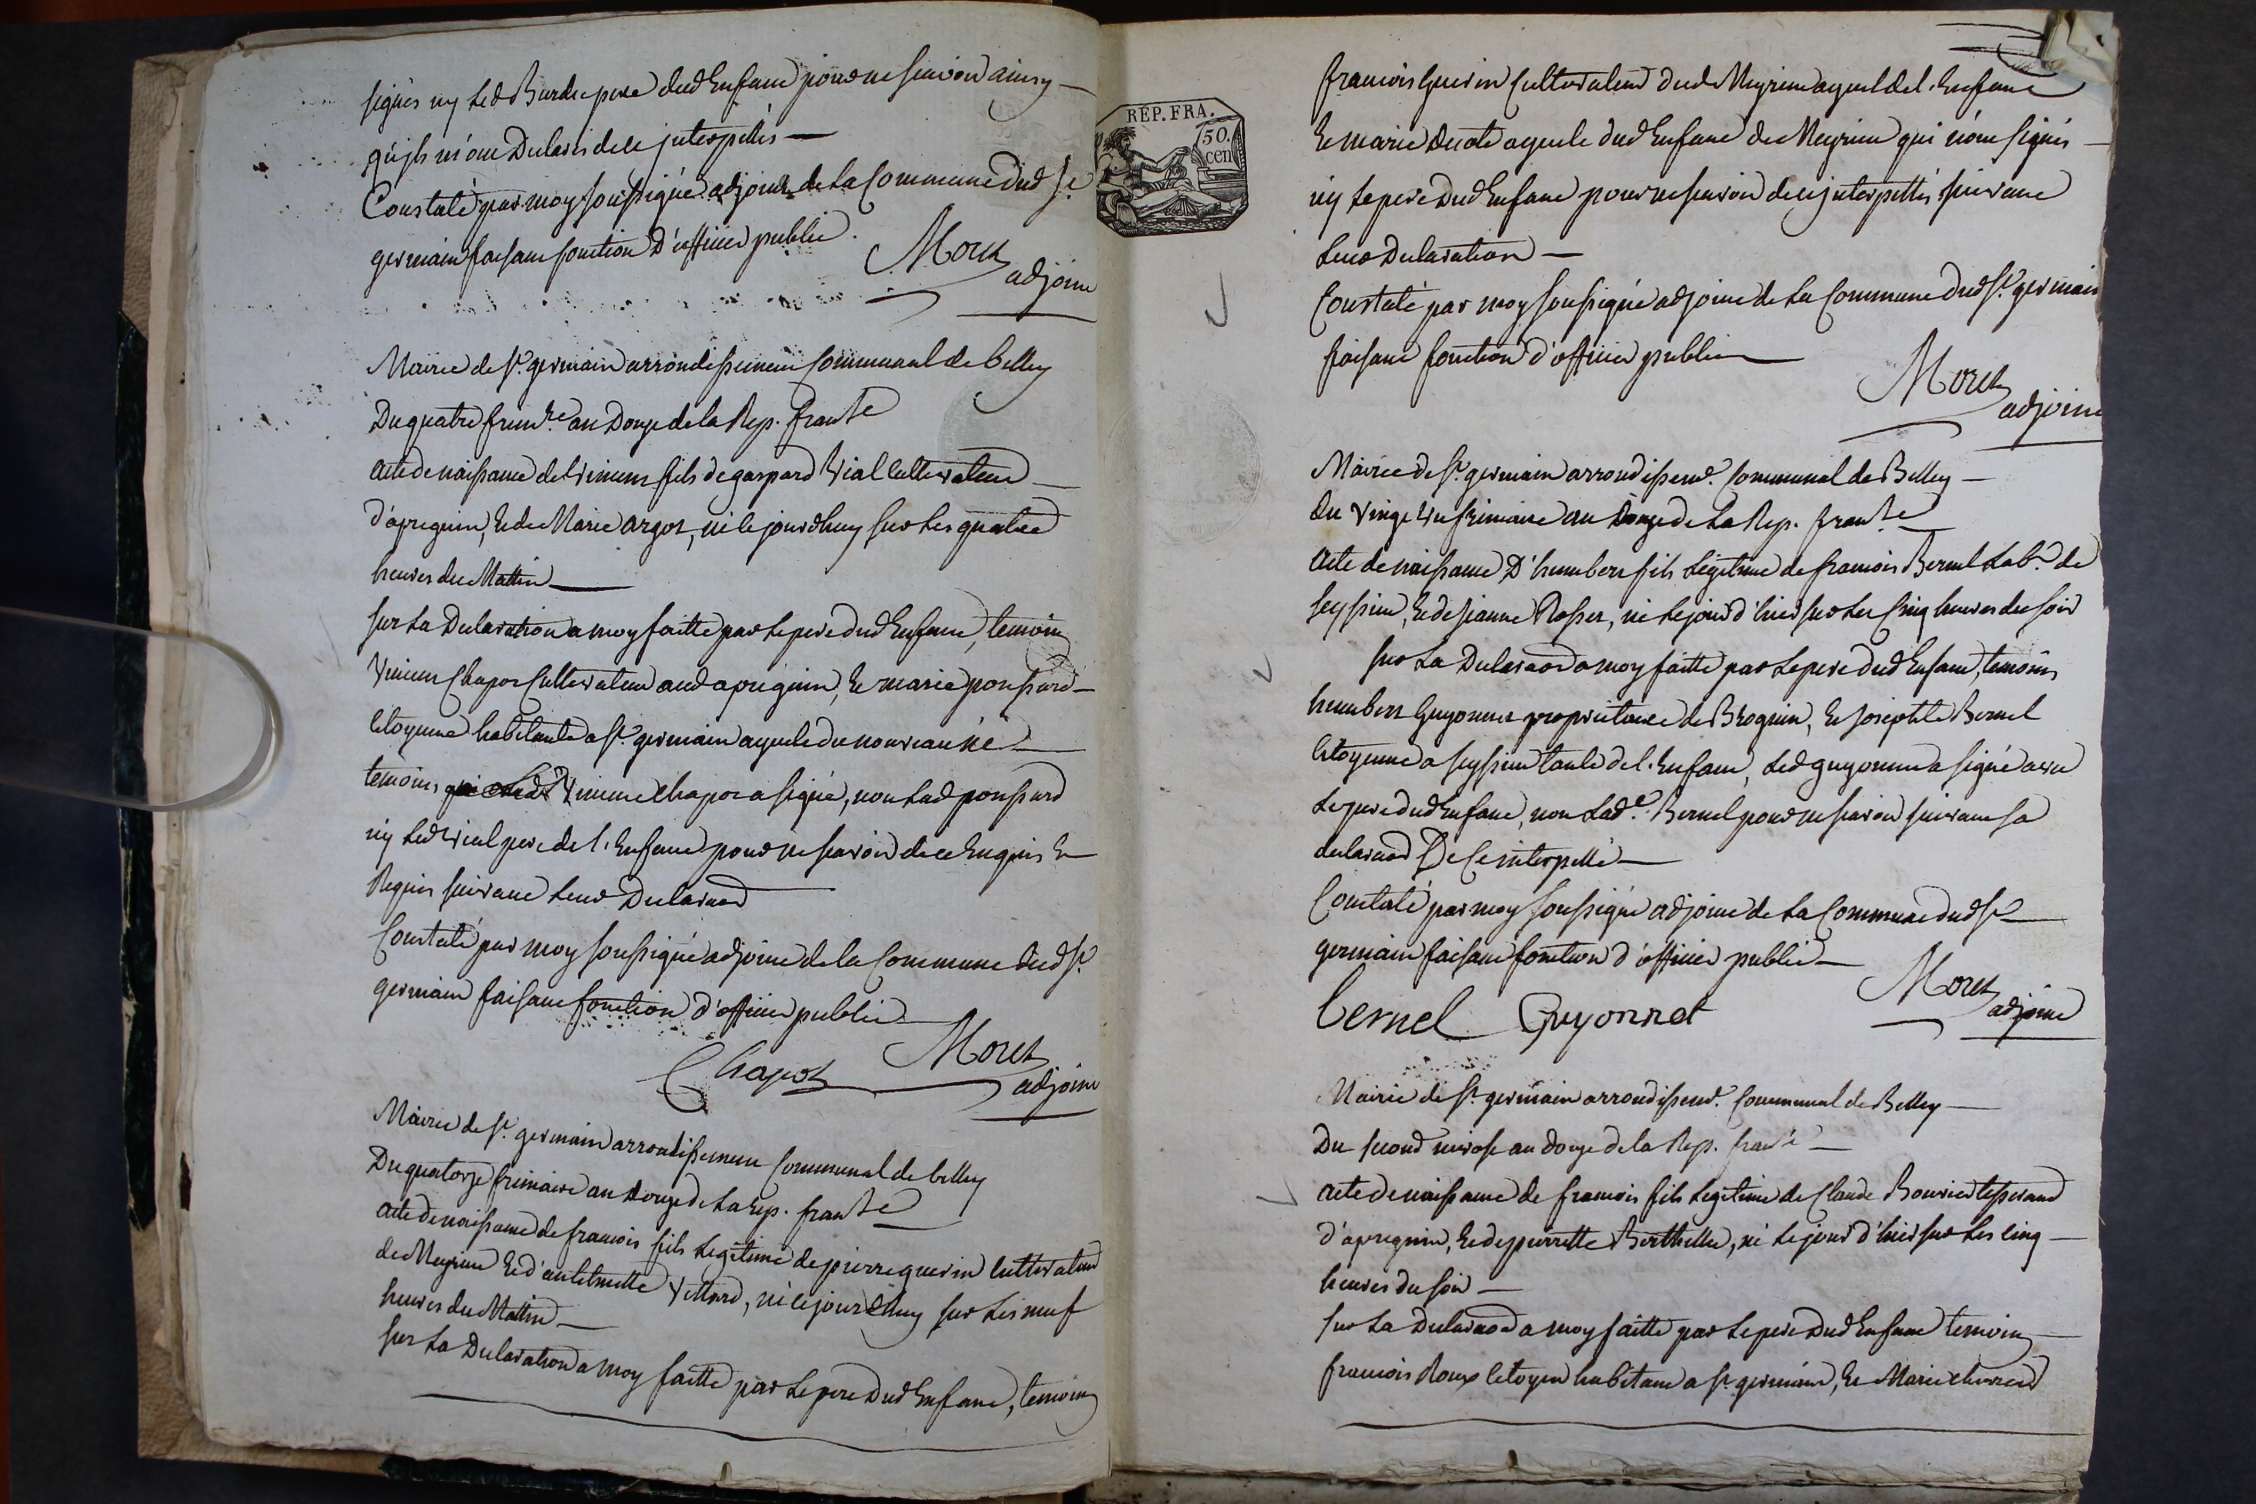 signés ny led Burdet pere dud Enfant pour ne scavoir ainsy
qu'ils m'ont Declarés de ce interpellés
Constaté par moy soussigné adjoint de la Commune dud St
germain faisant fonction D'officier public.
Moret
adjoint
Mairie de St. germain arrondissement Communal de belley
Du quatre frimre an Douze de la Rep. franse
acte de naissance de Vincent fils de gaspard Vial cultivateur
d'apregnin, Et de Marie argot, né le jourdhuy sur les quatre
heures du Mattin
sur la Declaration a moy faitte par le pere dud Enfant, temoin
Vincent Chapot Cultivateur aud apregnin, Et marie ponsard
Citoyenne habitante a St. germain ayeule du nouveau né
temoins Vincent chapot a signé, non lad ponsard
ny led Vial pere de l'Enfant pour ne scavoir de ce Enquis Et
Requis suivant leur Declaraon
Constaté par moy soussigné adjoint de la Commune dud St.
germain faisant fonction d'officier public
Chapot
Moret
adjoint
Mairie de St. germain arrondissement Communal de belley
Du quatorze frimaire an douze de la rep. franse
acte de naissance de francois fils legitime de pierre guerin cultivateur
de Meyrieu Et d'antelmette Villard, né le jour dhuy sur les neuf
heures du Mattin
sur la Declaration a moy faitte par le pere Dud Enfant, temoins
francois Guerin Cultivateur dud Meyrieu ayeul de l'Enfant
Et marie ayeule dud Enfant de Meyrieu qui n'ont signés
ny le pere Dud Enfant pour ne scavoir de ce interpellés suivant
leur Declaration
Constaté par moy soussigné adjoint de la Commune dud St. germain
faisant fonction d'officier public
Moret
adjoint
REP. FRA.
50.
cen
Mairie de St. germain arrondissemt. Communal de Belley
du vingt un frimaire an Douze de la Rep. franse
acte de naissance D'humbert fils legitime de francois Bernel Labr. de
seyssieu, Et de jeanne Rosset, né le jour d'hier sur les Cinq heures du soir
sur la Declaraon a moy faitte par le pere dud Enfant, temoins
humbert Guyonnet proprietaire de Brognin, Et josephte Bernel
Citoyenne a seyssieu tante de l'Enfant, led guyonnet a signé avec
le pere dud Enfant, non lade. Bernel pour ne scavoir suivant sa
declaraon De Ce interpellé
Constaté par moy soussigné adjoint de la Commune dud St
germain faisant fonction d'officier public
bernel Guyonnet
Moret
adjoint
Mairie de St. germain arrondissemt. Communal de Belley
Du second nivose an douze de la Rep. franse
acte de naissance de francois fils legitime de Claude Bouvier tisserand
d'apregnin, Et de pierrette Berthellet, né le jour d'hier sur les cinq
heures du soir
sur la Declaraon a moy faitte par le pere Dud Enfant temoins
francois Roux Citoyen habitant a St. germain, Et Marie